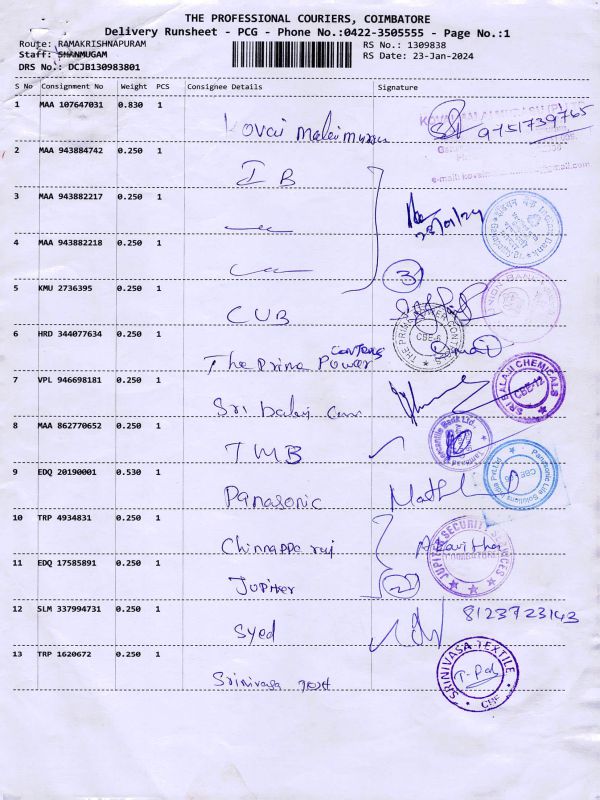 THE PROFESSIONAL COURIERS, COIMBATORE
Delivery Runsheet - PCG - Phone No.:0422-3505555 - Page No.:1
Route: RAMAKRISHNAPURAM
RS No.: 1309838
Staff: SHANMUGAM
RS Date: 23-Jan-2024
DRS No.: DCJB130983801
S No Consignment No Weight PCS Consignee Details Signature
1 MAA 107647031 0.830 1 Kovai 9751739765
2 MAA 943884742 0.250 1 I B
3 MAA 943882217 0.250 1
4 MAA 943882218 0.250 1 3
5 KMU 2736395 0.250 1 CUB
6 HRD 344077634 0.250 1 The Prime Power
THE PRIME POWER CBE-6
7 VPL 946698181 0.250 1 Sri balaji
SRI BALAJI CHEMICALS CBE-12
8 MAA 862770652 0.250 1 TMB
9 EDQ 20190001 0.530 1 Panasonic
Panasonic Life Solutions India Pvt.Ltd
10 TRP 4934831 0.250 1 Chinnappa raj
JUPITER SECURITY SERVICES
11 EDQ 17585891 0.250 1 Jupiter 2
12 SLM 337994731 0.250 1 Syed 8123723143
13 TRP 1620672 0.250 1 Srinivasa
SRINIVASA TEXTILE CBE